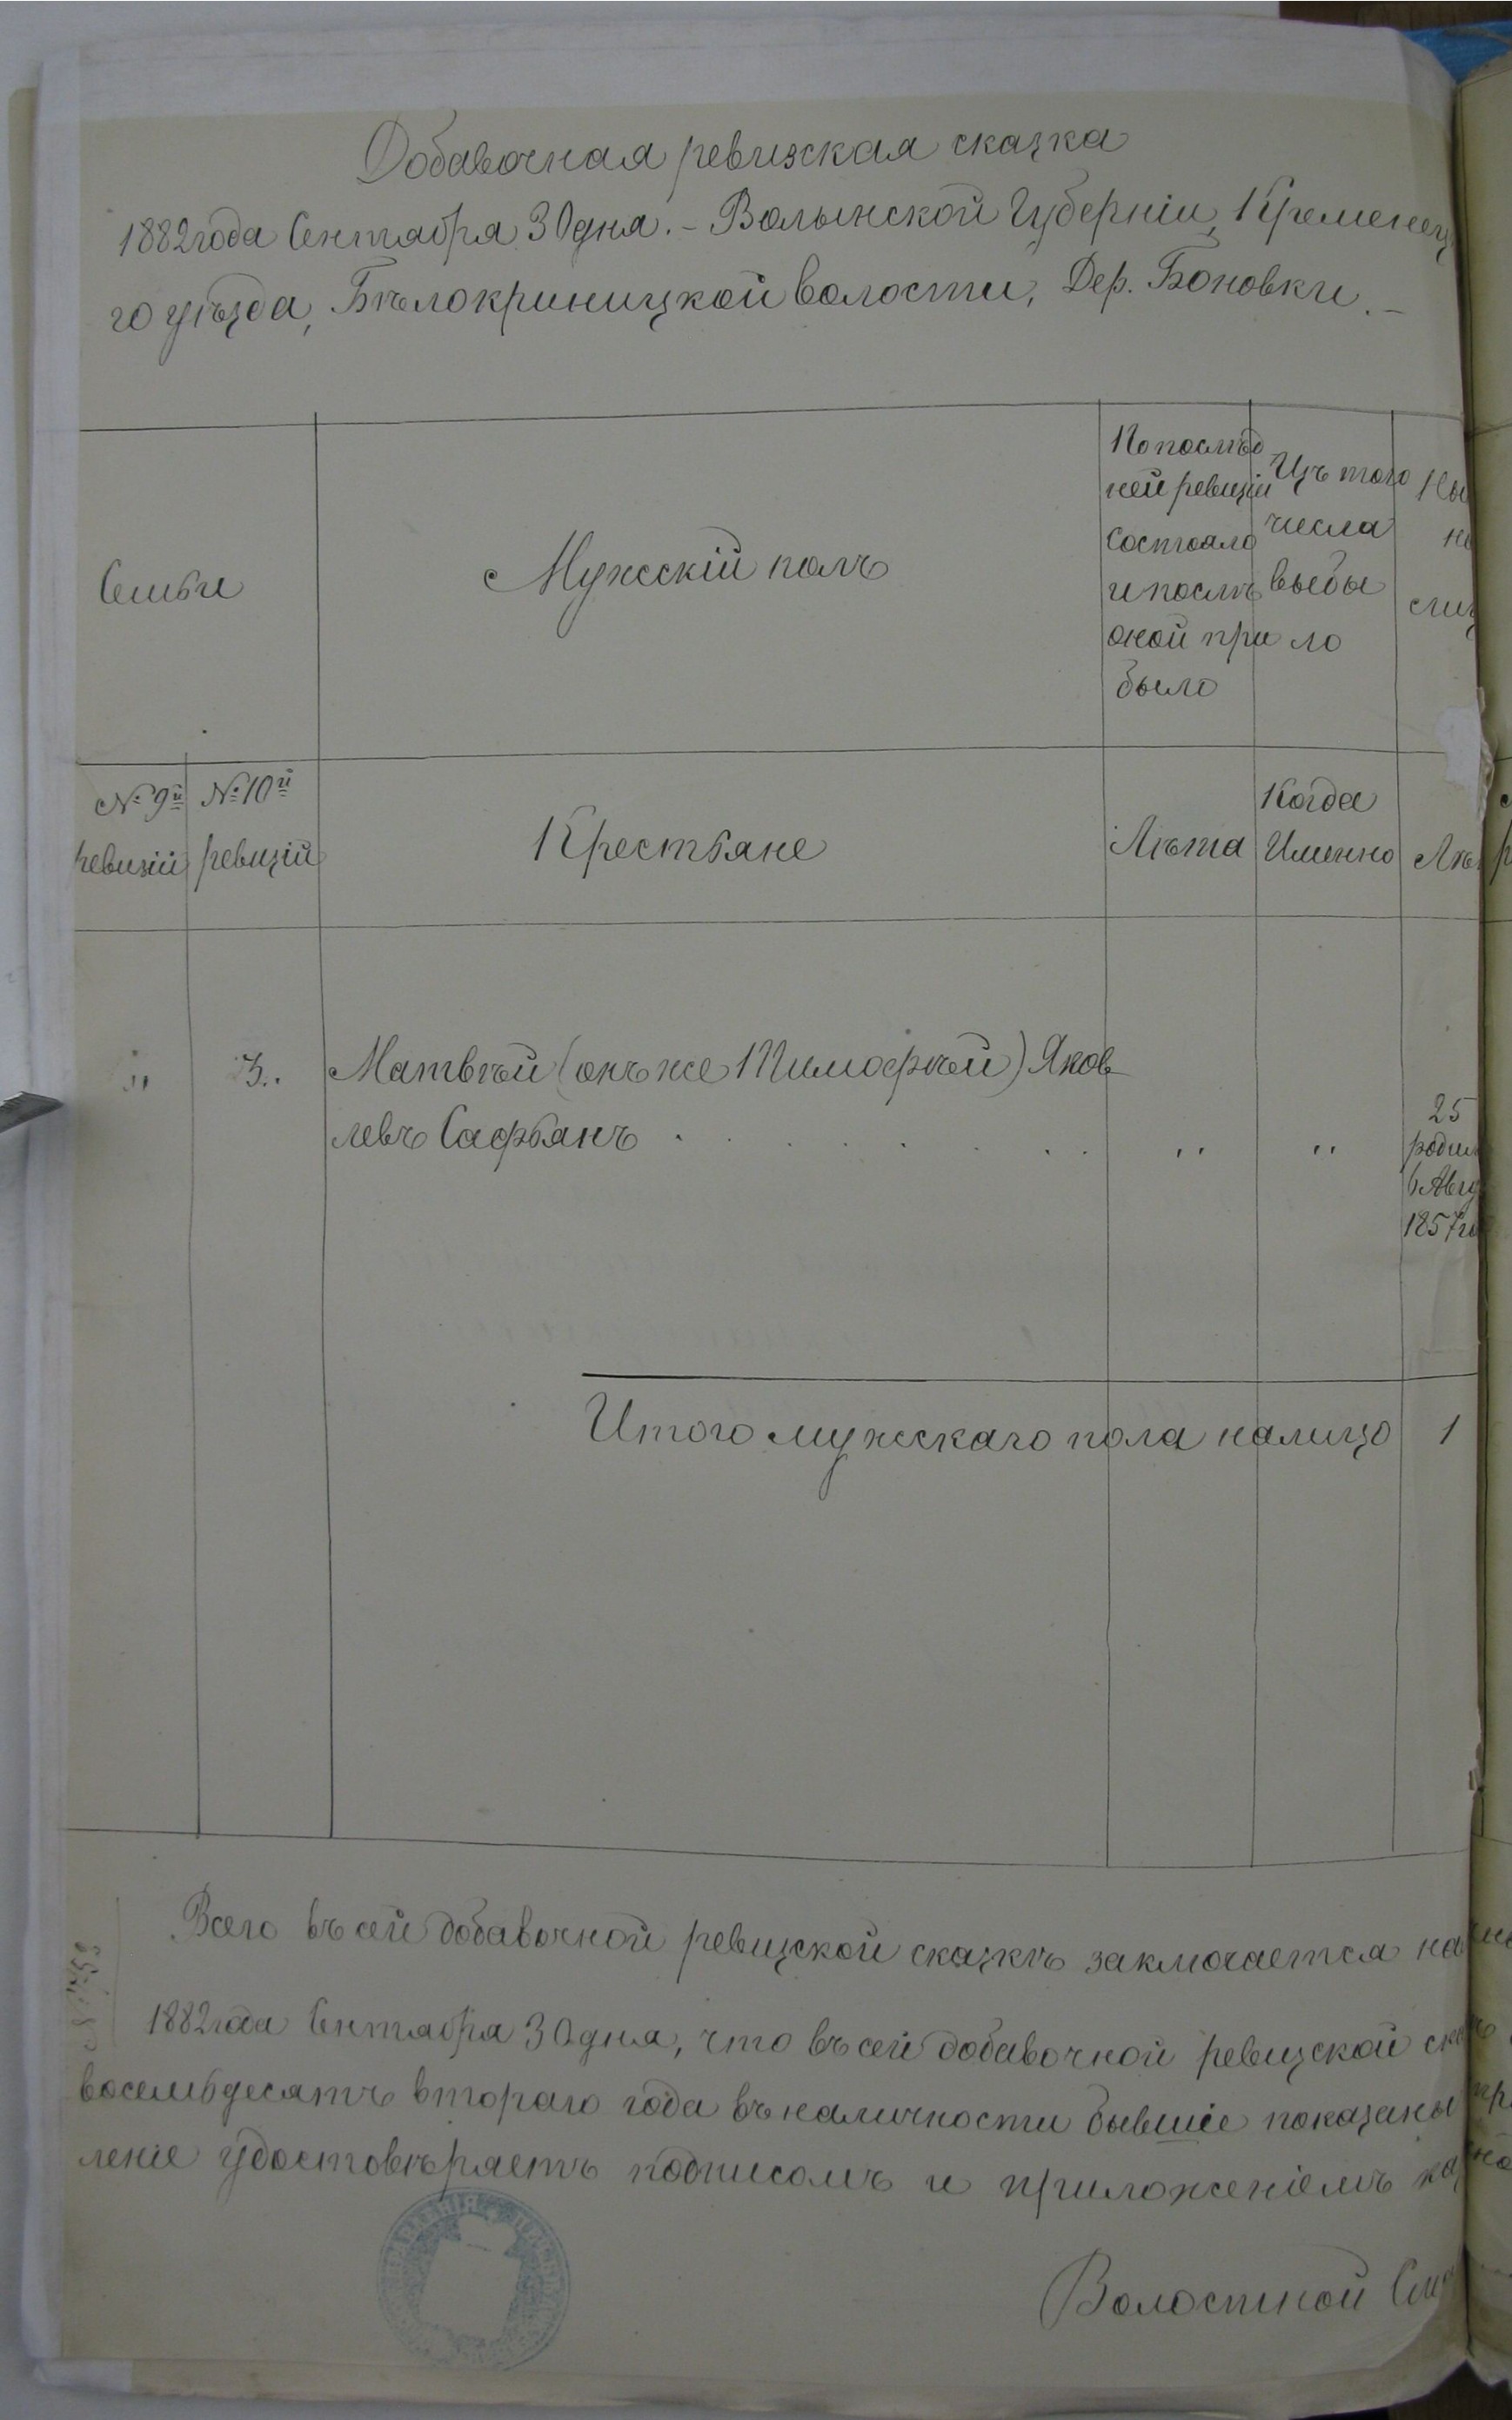 Добавочная ревизская сказка
1882 года Сентября 30 дня. – Волынской Губерніи, Кременец
го уѣзда, Бѣлокриницкой волости, Дер. Боновки. –
Семьи
Мужескій полъ
По послѣд
ней ревизіи
состояло
и послѣ
оной при
было
Изъ того
числа
выбы
ло
Ны
не
лиц
№ 9й
ревизіи
№ 10й
ревизій
Крестьяне
Лѣта
Когда
Именно
Лѣ
„
3.
Матвѣй (онъ же Тимофѣй) Яков
левъ Сафьянъ . . . . . . . .
„
„
25
родил
6 Авгу
1857 го
Итого мужескаго пола налицо
1
Всего въ сей добавочной ревизской сказкѣ заключается на
1882 года Сентября 30 дня, что въ сей добавочной ревизской ска
восемьдесятъ втораго года въ наличности бывшіе показаны
леніе удостовѣряетъ подписомъ и приложеніемъ ка
Волостной Ста